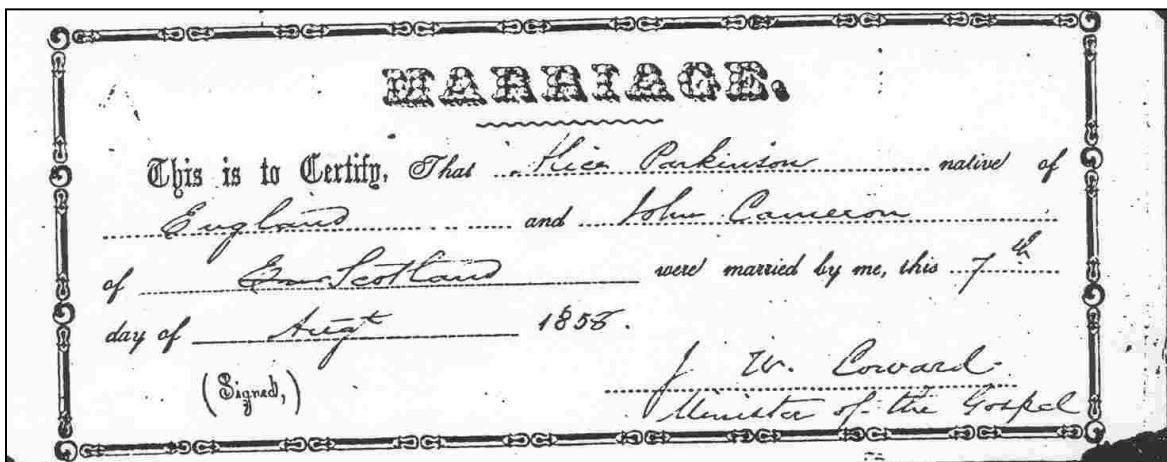 MARRIAGE.
This is to Certify, That Alice Parkinson native of
England and John Cameron
of Scotland were married by me, this 7th
day of Augt 1858.
(Signed,) J W. Coward
Minister of the Gospel